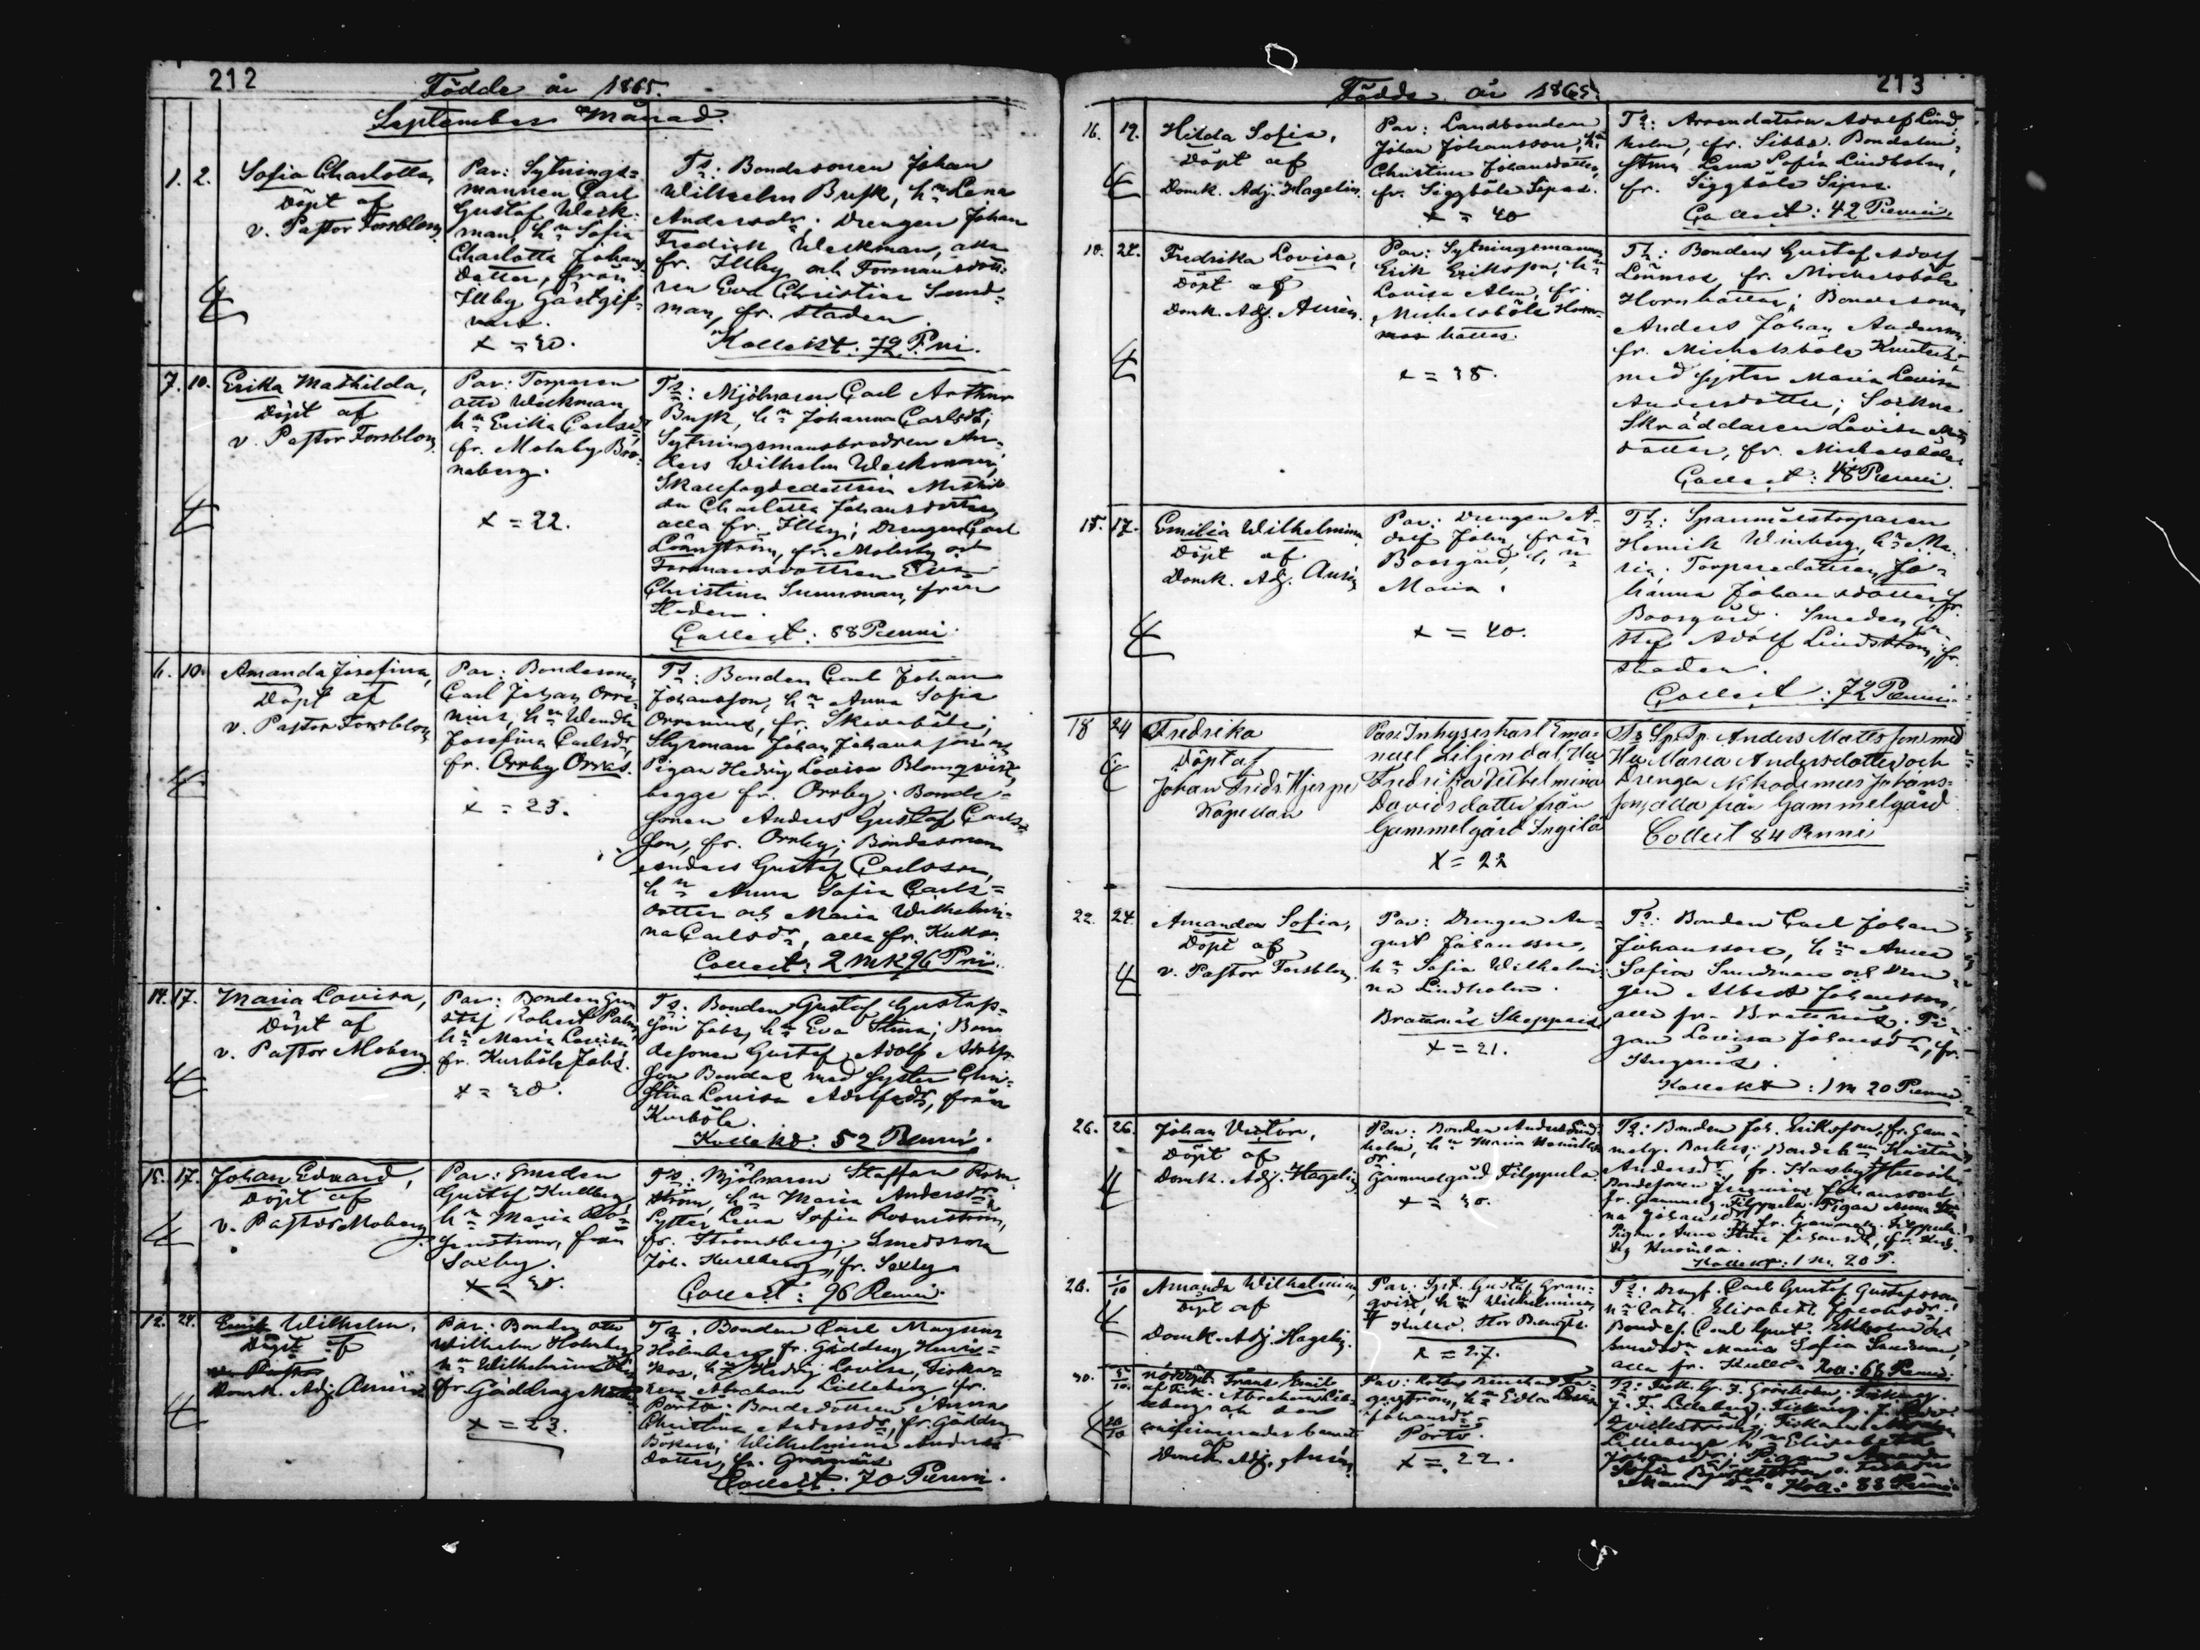 212
Födde år 1865.
September Månad.
1. 2. Sofia Charlotta,
Döpt af
v. Pastor Forsblom.
Par: Sytnings=
mannen Carl
Gustaf Weck-
man, hn Sofia
Charlotta Johans
dotter, från
Illby Gästgif-
vars.
x = 30.
Ts: Bondesonen Johan
Wilhelm Busk, hn Lena
Andersdr. Drengen Johan
Fredrik Weckman, alla
fr. Illby och Formansdott-
ren Eva Christina Sund=
man, fr. staden.
Kollekt: 72 P:ni.
7. 10. Erika Mathilda,
Döpt af
v. Pastor Forsblom.
Par: Torparen
Otto Weckman
hn Erika Carlsdr
fr. Molnby Bro-
neberg.
x = 22.
Ts: Mjölnaren Carl Arthur
Busk, hn Johanna Carlsdr;
Sytningsmansbrodren An-
ders Wilhelm Weckman,
Skallfogdedottren Mathil
da Charlotta Johansdotter
alla fr. Illby; Drengen Carl
Lönnström, fr. Molnby och
Formansdottren Eva
Christina Sunnman, från
staden.
Collect: 88 Penni.
6. 10. Amanda Josefina,
Döpt af
v. Pastor Forsblom
Par: Bondesonen
Carl Johan Orre-
nius, hn Wendla
Josefina Carlsdr,
fr. Orrby Orras.
x = 23.
Ts: Bonden Carl Johan
Johansson, hn Anna Sofia
Orrenius, fr. Skavaböle;
Styrman Johan Johansson och
Pigan Hedvig Lovisa Blomqvist,
begge fr. Orrby; Bonde-
sonen Anders Gustaf Carls-
son, fr. Orrby; Bondesonen
Anders Gustaf Carlsson,
hn Anna Sofia Carls=
dotter och Maria Wilhelmi-
na Carlsdr, alla fr. Kuks.
Collect: 2 mk 96 P:ni.
14. 17. Maria Lovisa,
Döpt af
v. Pastor Moberg
Par: Bonden Gu
staf Robert Palm
hn Maria Lovisa
fr. Kurböle Jabs.
x = 30.
Ts: Bonden Gustaf Gustafs-
son Jabs, hn Eva Stina; Bon
desonen Gustaf Adolf Adolfs-
son Bondas med syster Chri-
stina Lovisa Adolfsdr, från
Kurböle.
Kollekt: 52 Penni.
15. 17. Johan Edvard,
Döpt af
v. Pastor Moberg
Par: Smeden
Gustaf Kullberg
hn Maria Ro-
senström, från
Saxby.
x = 30.
Ts: Mjölnaren Staffan Rosen-
ström, hn Maria Andersdr
Syster Lena Sofia Rosenström,
fr. Strömsberg; Smedsson
Joh. Kullberg, fr. Saxby
Collect: 96 Penni.
12. 24. Emil Wilhelm,
Döpt af
v. Pastor
Domk. Adj. Aurén
Par: Bonden Otto
Wilhelm Holmberg
hn Wilhelmina
fr. Gäddrag
x = 23.
Ts: Bonden Carl Magnus
Holmberg, fr. Gäddrag
hn Hedvig Lovisa,
Abraham Lilleberg, fr.
Pörtö. Bondedottren Anna
Christina Andersdr, fr. Gäddrag
Bökars; Wilhelmina Anders
dotter, fr. Grännäs
Collect: 70 Penni.
213
Födde år 1865.
16. 19. Hilda Sofia,
Döpt af
Domk. Adj. Hagelin.
Par: Landbonden
Johan Johansson, hn
Christina Johansdotter,
fr. Siggböle Sipas.
x = 40
Ts: Arrendatorn Adolf Lind
holm, fr. Sibbo. Bondehu-
strun Lena Sofia Lindholm,
fr. Siggböle Sipas.
Collect: 42 Penni.
10. 24. Fredrika Lovisa,
Döpt af
Domk. Adj. Aurén.
Par: Sytningsmannen
Erik Eriksson, hn
Lovisa Alm, fr.
Mickelsböle Horn-
hattas.
x = 38.
Ts: Bonden Gustaf Adolf
Lönnros, fr. Mickelsböle
Hornhattas; Bondesonen
Anders Johan Andersson
fr. Mickelsböle
med syster Maria Lovisa
Andersdotter; Sockne
Skräddaren Lovisa
dotter, fr. Mickelsböle
Collect: 48 Penni.
15. 17. Emilia Wilhelmina
Döpt af
Domk. Adj. Aurén
Par: Drengen A-
dolf John, från
Boosgård, hn
Maria.
x = 40.
Ts: Spannmålstorparen
Henrik Winberg, hn Ma-
ria; Torparedottren, Jo-
hanna Johansdotter, fr.
Boosgård. Smeden Gu-
staf Adolf Lindström, fr.
staden.
Collect: 72 Penni.
18 24 Fredrika
Döpt af
Johan Fredr. Hjerpe
Kapellan
Par: Inhysesharl Ema-
nuel Liljendal, Hu
Fredrika Vilhelmina
Davidsdotter från
Gammelgård Ingilä
x = 22
Ts Sp:Tp. Anders Mattsson med
Hu Maria Andersdotter och
Drengen Nikodemus Johans-
son, alla från Gammelgård.
Collect 84 Penni
22. 24. Amanda Sofia,
Döpt af
v. Pastor Forsblom
Par: Drengen Au-
gust Johansson,
hn Sofia Wilhelmi-
na Lindholm.
Brattnäs Skeppars
x = 21.
Ts: Bonden Carl Johan
Johansson, hn Anna
Sofia Sundman och Dren-
gen Albert Johansson,
alla fr. Brattnäs. Pi-
gan Lovisa Johansdr, fr.
Kugnäs.
Kollekt: 1 m 20 Penni.
26. 26. Johan Victor,
Döpt af
Domk. Adj. Hagelin
Par: Bonden Anders Lind
holm, hn Maria Henriks
dr.
Gammelgård Filppula
x = 30.
Ts: Bonden Joh. Eriksson, fr. Gam-
melg. Backis; Kristina
Andersdr, fr.
Bondesonen Johansson
fr. Gammelg. Filppula. Pigan Anna Sti
na Johansdr, fr. Gammelg. Filppula.
Pigan Anna Stina Johansdr, fr.
Kollekt: 1 m. 20 P.
26. 1/10 Amanda Wilhelmina,
Döpt af
Domk. Adj. Hagelin.
Par: Syt. Gustaf Gran-
qvist, hn Wilhelmina,
fr Kullo, Stor Bengts.
x = 27.
Ts: Drengs. Carl Gustaf Gustafsson,
hn Cath. Elisabeth Jacobsdr.
Bondes. Carl Gust. Ekholm
Maria Sofia Sandman,
alla fr. Kullo. Koll: 68 Penni.
30. 5/10. nöddöpt Frans Emil
af Fisk. Abraham Lil-
leberg och den
20/10 confirmerades
Domk. Adj. Aurén.
Par:
hn Edla Lovisa
Johansdr
Pörtö.
x = 22.
Ts: Fisk.
J. F. Lilleberg,
Lilleberg, hn Elisabeth
Johansdr; Pigan Amanda
Sofia
Koll: 88 Penni.